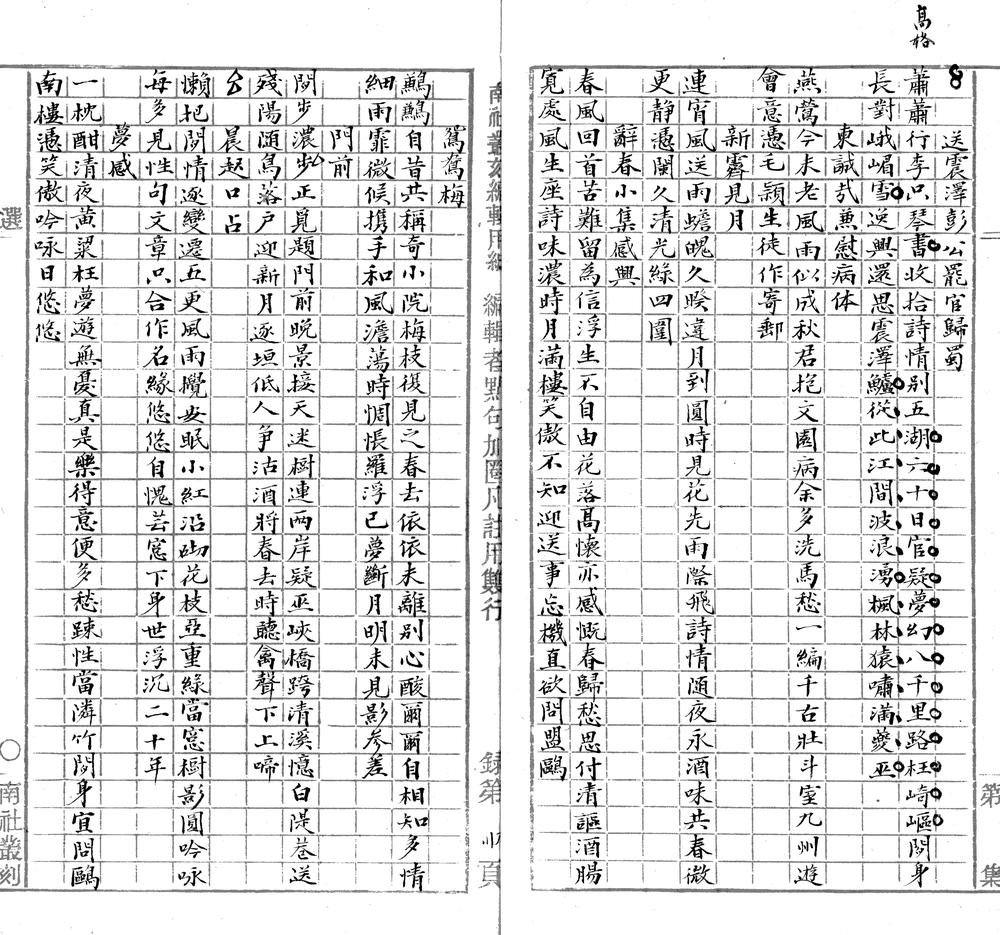 高格
送震澤彭公罷官歸蜀
蕭蕭行李只琴書收拾詩情别五湖六十日官疑夢幻八千里路枉崎嶇閒身
長對峨嵋雪逆興還思震澤鱸從此江間波浪湧楓林猿嘯滿夔巫
東誠甫兼慰病体
燕鶯今未老風雨似成秋君抱文園病余多洗馬愁一編千古壯斗室九州遊
會意憑毛穎生徒作寄郵
新霽見月
連宵風送雨蟾魄久暌違月到圓時見花先雨際飛詩情随夜永酒味共春微
更静憑闌久清光綠四圍
辭春小集感興
春風回首苦難留為信浮生不自由花落髙懷亦感慨春歸愁思付清謳酒腸
寬處風生座詩味濃時月滿樓笑傲不知迎送事忘機直欲問盟鷗
第
集
南社叢刻編輯用紙
編輯者點句加圈凡註用雙行
錄第
頁
鴛鴦梅
鶼鶼自昔共稱奇小院梅枝復見之春去依依未離别心酸爾爾自相知多情
細雨霏微候携手和風澹蕩時惆悵羅浮已夢斷月明未見影參差
門前
閒步濃步正覓題門前晚景接天迷樹連两岸疑巫峽橋跨清溪憶白隄巷送
殘陽随鳥落户迎新月逐垣低人争沽酒將春去時聽禽聲下上啼
晨起口占
懒把閒情逐變遷五更風雨攪安眠小紅沿砌花枝亞重綠當窓樹影圓吟咏
每多見性句文章只合作名緣悠悠自愧芸窓下身世浮沉二十年
夢感
一枕酣清夜黄粱枉夢遊無憂真是樂得意便多愁踈性當隣竹閒身宜問鷗
南樓憑笑傲吟咏日悠悠
選
南社叢刻